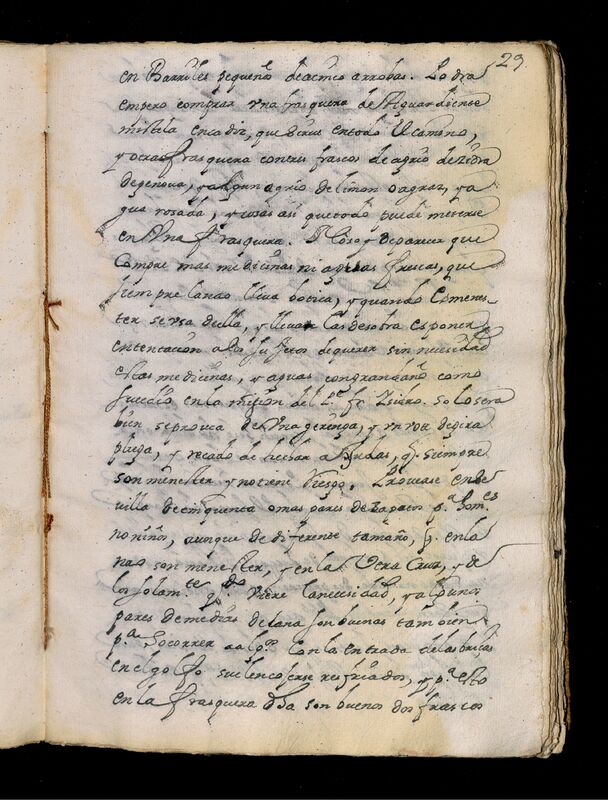 29
en Barriles pequeños de acinco arrobas. Podra
empero comprar vna frasquera de Aguardiente
mistela en cadiz, que sirue en todo el camino,
y otra frasquera con tres frascos de agrio de zidra
de genoua, y algun agrio de limon o agraz, y a
gua rosada, y cosas assi que todo puede meterse
en vna frasquera. No soy de parecer que
compre mas medicinas ni aguas frescas, que
siempre la nao lleua botica, y quando es menes
ter se vsa della, y lleuar las de sobra es poner
en tentacion a los sujetos de querer sin necesidad
estas medicinas, y aguas con gran daño como
sucedio en la mission del Pe. fr.
bien se prouea de vna geringa, y
y recado de hechar ayudas, q. siempre
son menester y no tiene riesgo. Prouease en Se
uilla de cinquenta o mas pares de zapatos pa. hom
no niños, aunque de diferente tamaño, q. en la
nao son menester, y en la Vera Cruz, y de
los solamte. qdo. viere la necesidad, y algunos
pares de medias de lana son buenas tambien
pa. socorrer a algos. con la entrada de las brisas
en el golfo suelen coserse resfriados, y pa. esto
en la frasquera dha son buenos dos frascos